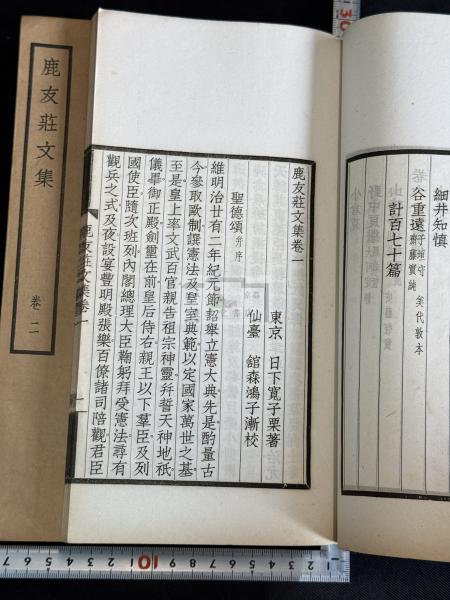 細井知慎
谷重遠 子垣守 齋藤實純 矣代敦本
計百七十篇
鹿友莊文集卷一
東京 日下寬子栗著
仙臺 舘森鴻子漸校
聖德頌 并序
維明治廿有二年紀元節詔舉立憲大典先是酌量古
今參取歐制譔憲法及皇室典範以定國家萬世之基
至是皇上率文武百官親告祖宗神靈幷誓天神地祇
儀畢御正殿劍璽在前皇后侍右親王以下羣臣及列
國使臣隨次班列內閣總理大臣鞠躬拜受憲法尋有
觀兵之式及夜設宴豐明殿張樂百僚諸司陪觀君臣
鹿友莊文集卷一
一
鹿友莊文集
卷二
30
10